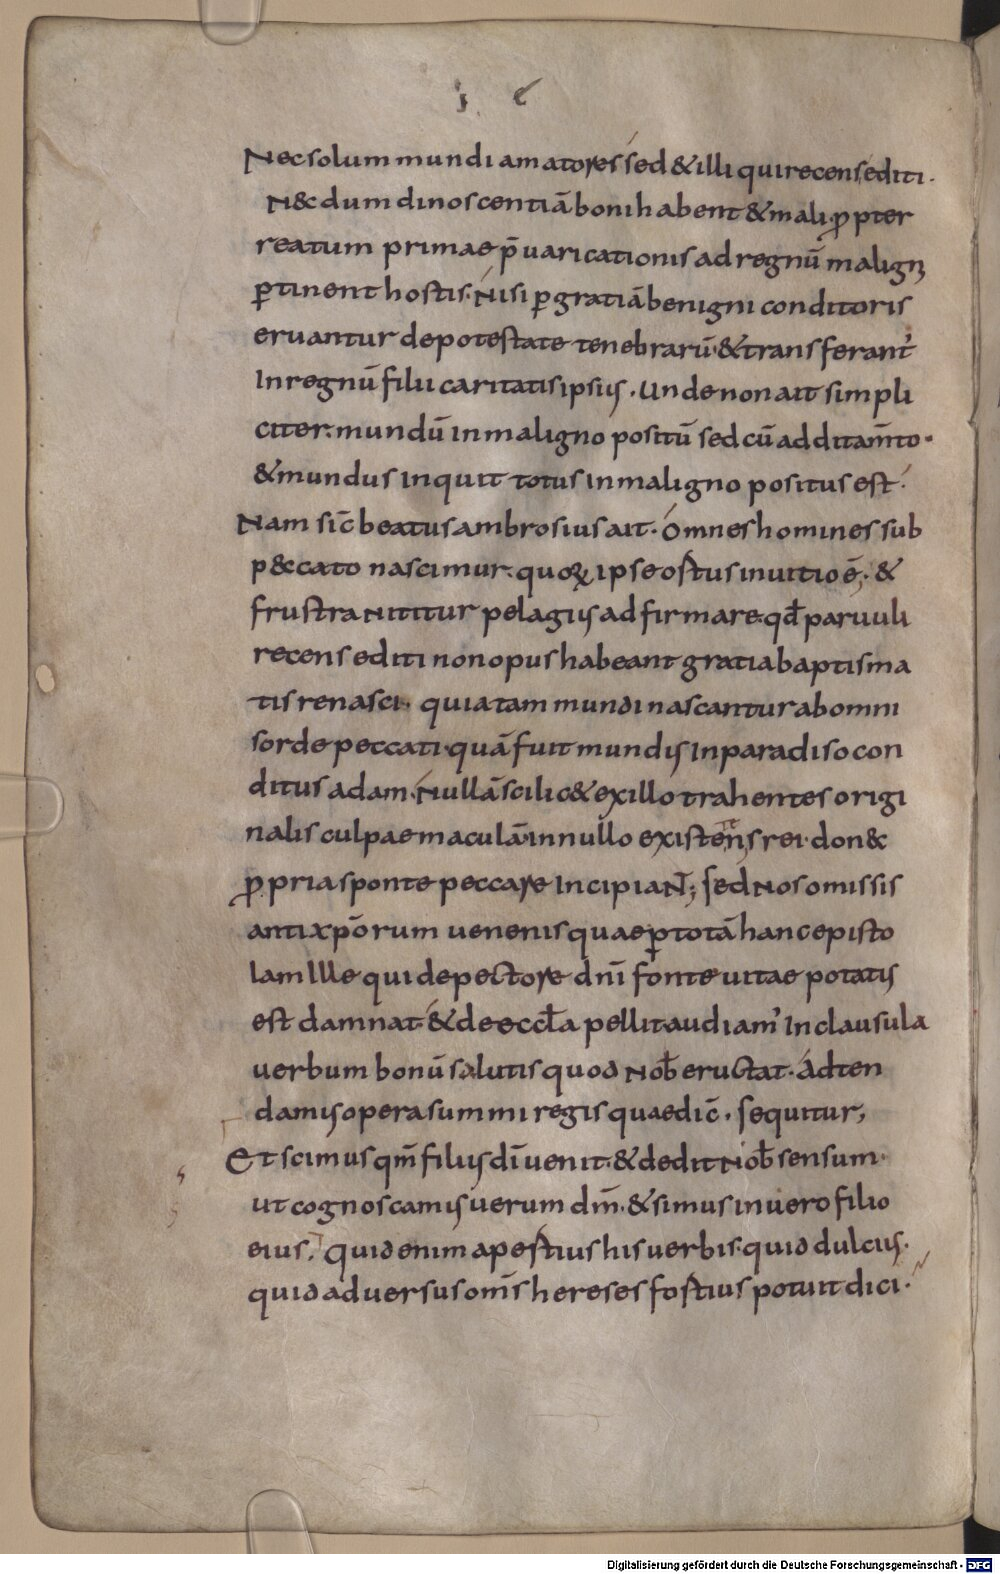 ı e
Nec solum mundi amatores sed & illi qui recens editi.
N&cdum dinoscentiā boni habent & mali. ꝓpter
reatum primae p̄uaricationis ad regnū maligni
ꝑtinent hostis. Nisi ꝑ gratiā benigni conditoris
eruantur de potestate tenebrarū. & transferant᾽
In regnū filii caritatis ipsius. Unde non ait simpli
citer. mundū in maligno positū sed cū additam̄to.
& mundus inquit totus in maligno positus est.
Nam sic̄ beatus ambrosius ait. Omnes homines sub
p&cato nascimur. quoꝝ ipse ostus in uitio ē; &
frustra nititur pelagius adfirmare. qđ paruuli
recens editi non opus habeant gratia baptisma
tis renasci. quia tam mundi nascantur ab omni
sorde peccati. quā fuit mundus In paradiso con
ditus adam. Nullā scilic& ex illo trahentes origi
nalis culpae maculā. in nullo existen̄s rei. don&
ꝓpria sponte peccare Incipiant̄; sed nos omissis
antixp̄orum uenenis quae ꝑ totā hanc episto
lam Ille qui de pectore dn̄i fonte uitae potatus
est damnat. & de eccl̄a pellit audiam᾽ In clausula
uerbum bonū salutis quod nob̄ eructat. Adten
damus opera summi regis quae dic̄. sequitur;
Et scimus qm̄ filius dī uenit. & dedit nob̄ sensum.
ut cognoscamus uerum dm̄. & simus in uero filio
eius. Quid enim apestius his uerbis. quid dulcius.
quid aduersus om̄s hereses fostius potuit dici.
Digitalisierung gefördert durch die Deutsche Forschungsgemeinschaft - DFG